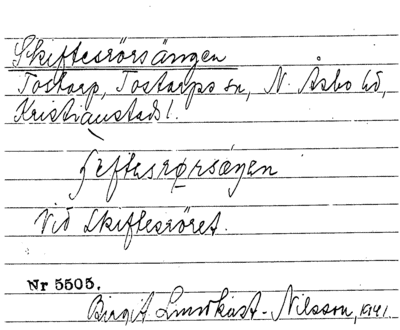 Skiftesrörsängen
Tostarp, Tostarps sn, N. Åsbo hd,
Kristianstads l.
ʃeftasrørsǫŋen
Vid Skiftesröret.
Nr 5505.
Birgit Lundkast-Nilsson, 1941.